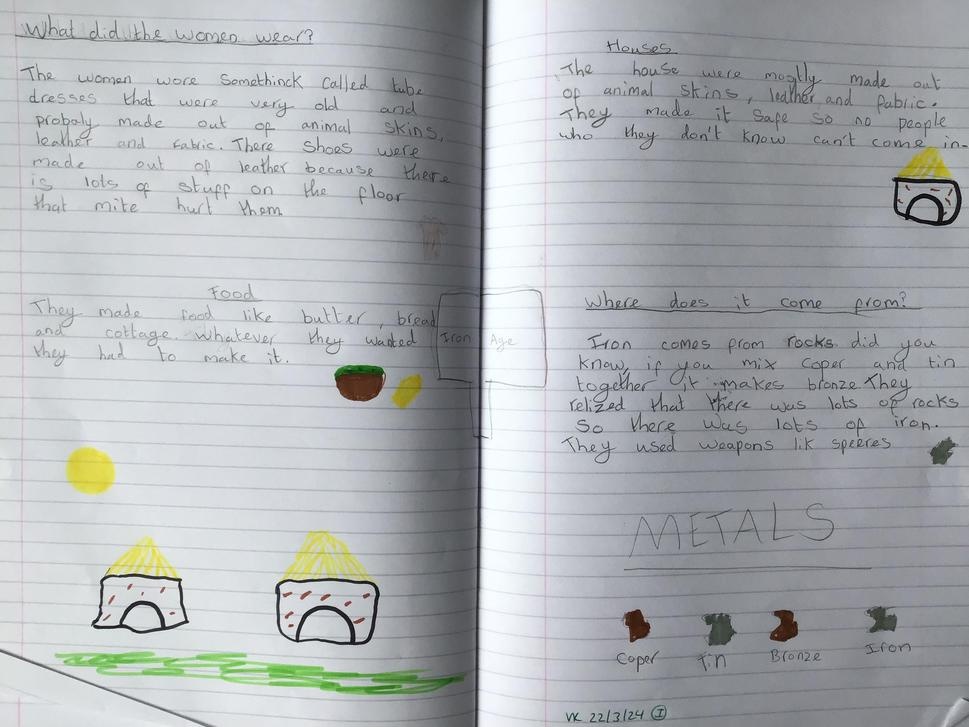 What did the women wear?
The women wore somethinck called tube
dresses that were very old and
probaly made out of animal skins,
leather and fabric. There shoes were
made out of leather because there
is lots of stuff on the floor
that mite hurt them
Food
They made food like butter, bread
and cottage. whatever they wanted
they had to make it.
Iron Age
Houses
The house were mostly made out
of animal skins, leather and fabric.
They made it safe so no people
who they don't know can't come in-
Where does it come from?
Iron comes from rocks. did you
know, if you mix coper and tin
together it makes bronze They
relized that there was lots of rocks
so there was lots of iron.
They used weapons lik speeres
METALS
Coper Tin Bronze Iron
VK 22/3/24 I